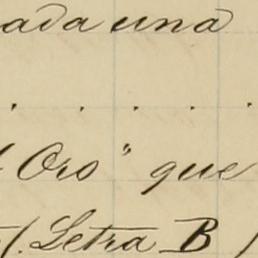 ada una
. . . . .
Oro" que
(Letra B)